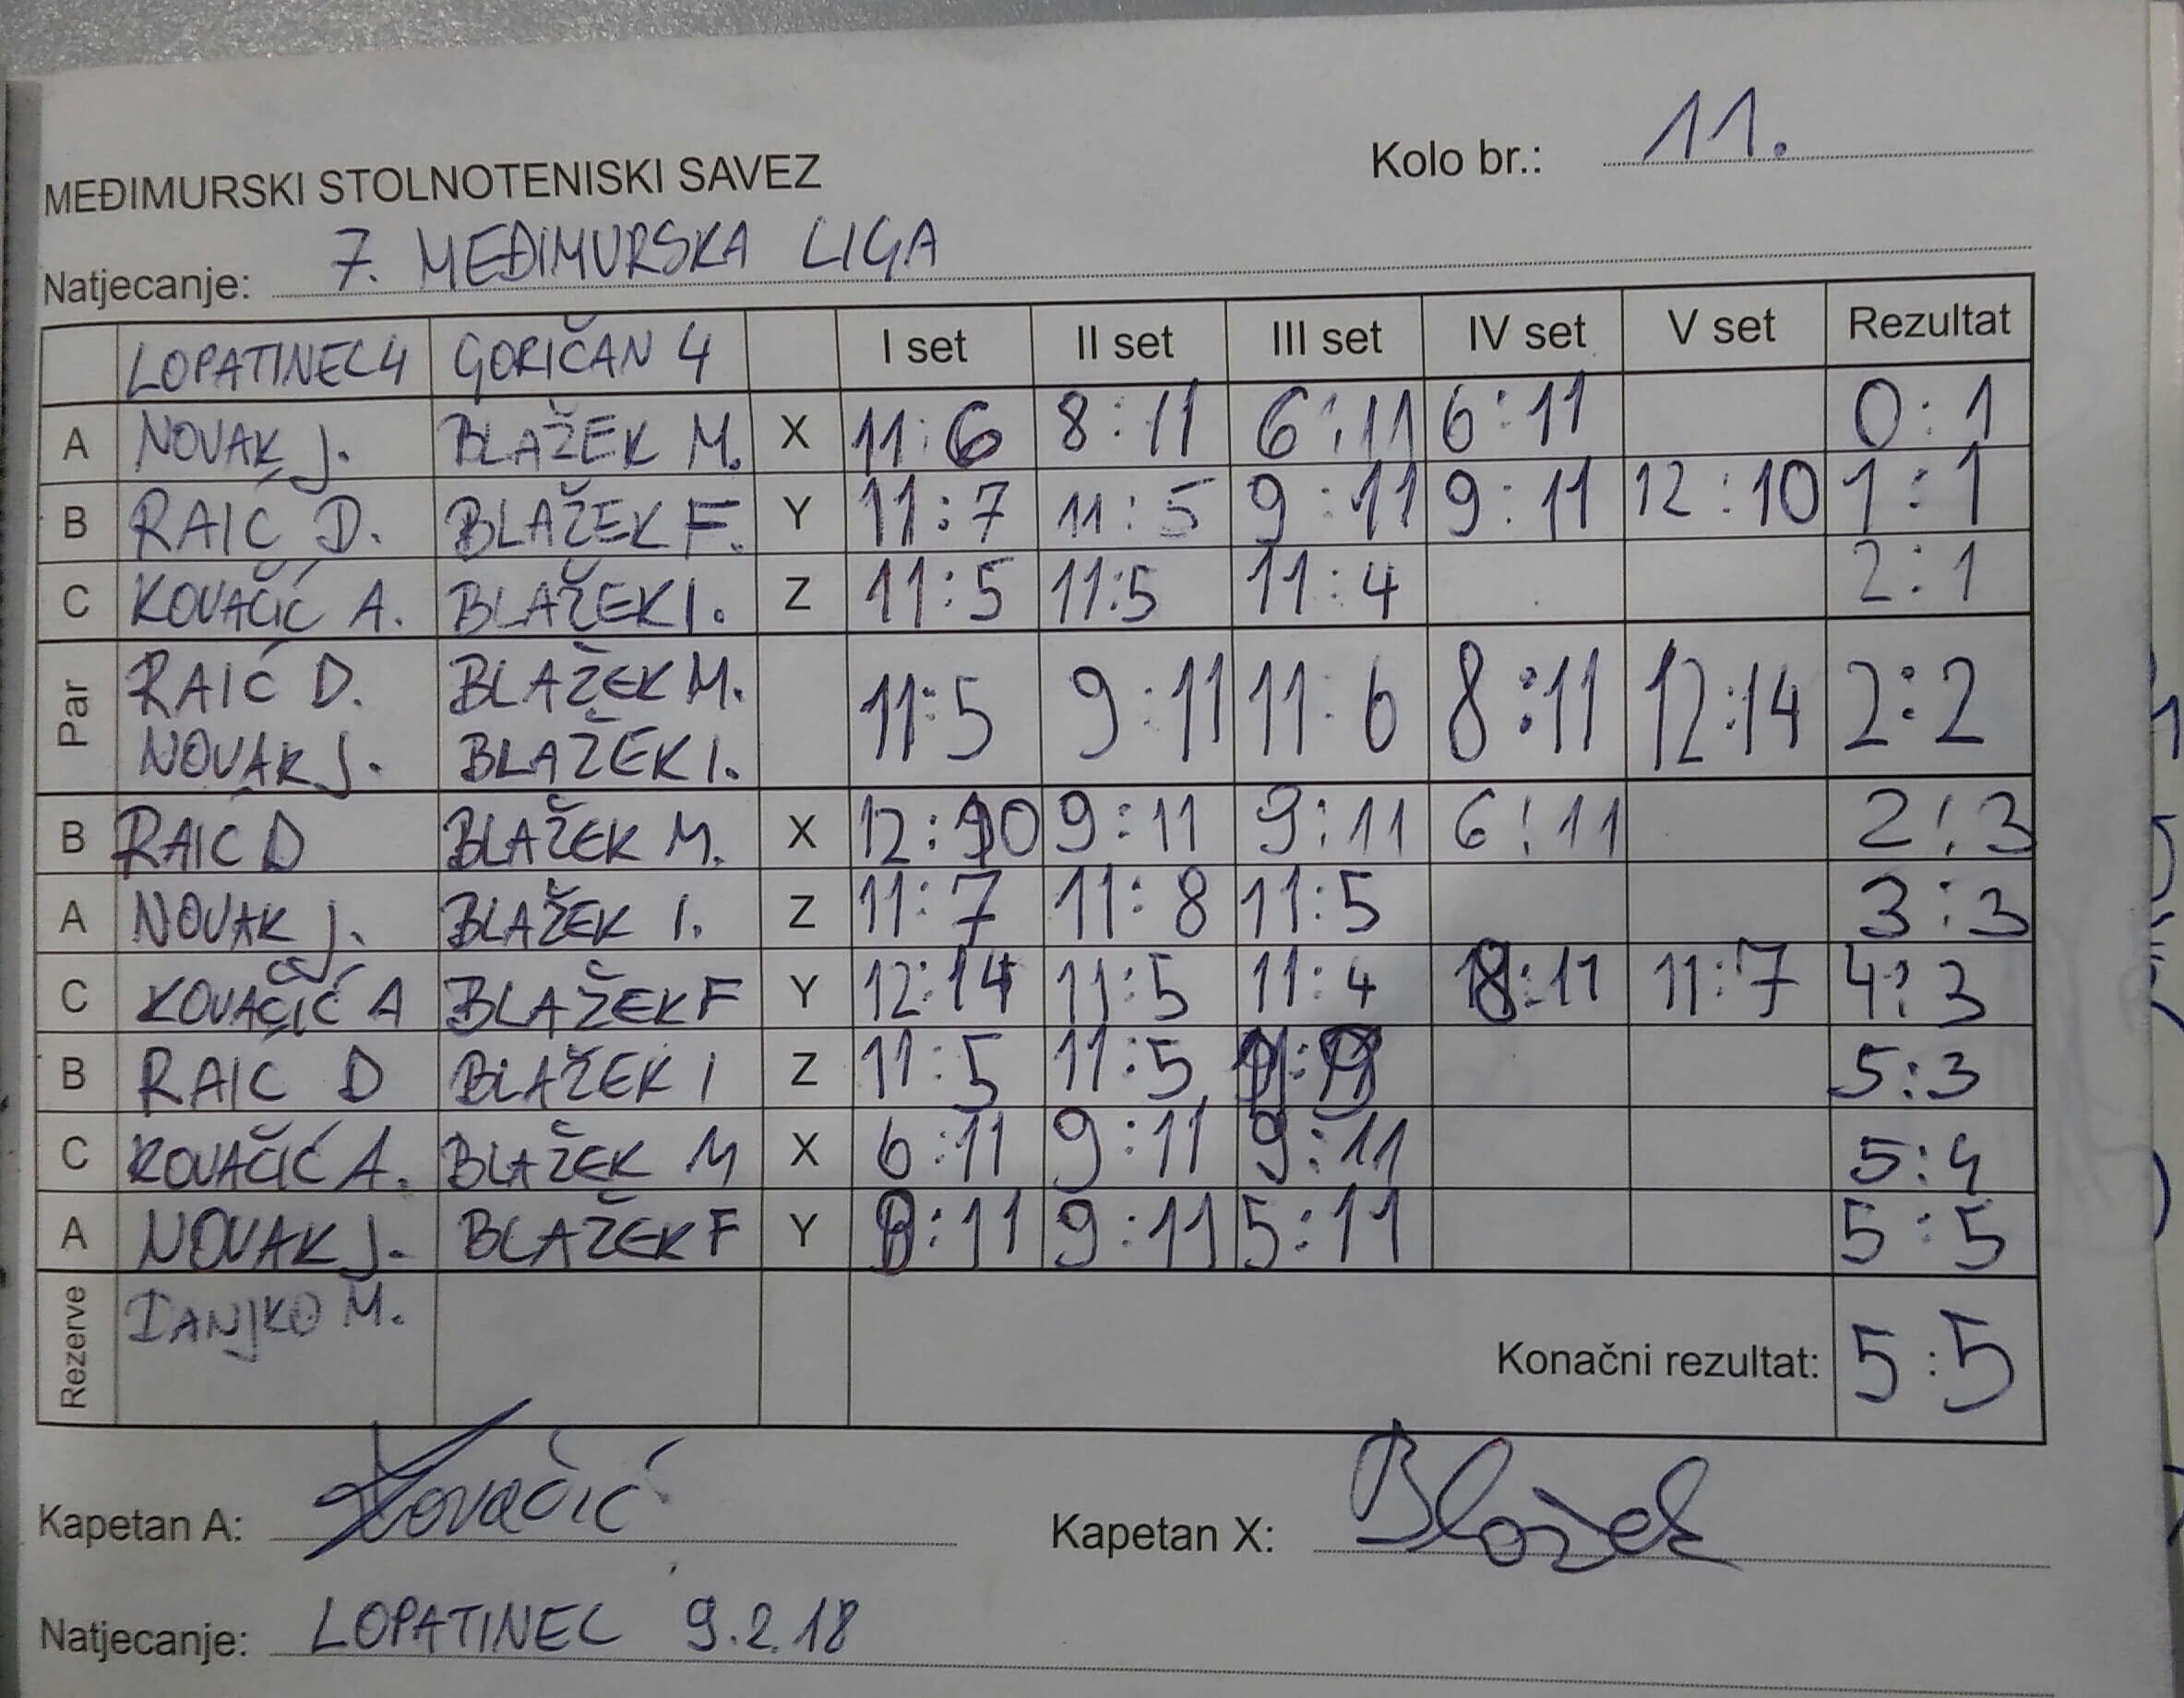 MEĐIMURSKI STOLNOTENISKI SAVEZ Kolo br.: 11.
Natjecanje: 7. MEĐIMURSKA LIGA
LOPATINEC 4 GORIČAN 4 I set II set III set IV set V set Rezultat
A NOVAK J. BLAŽEK M. X 11:6 8:11 6:11 6:11 0:1
B RAIĆ D. BLAŽEK F. Y 11:7 11:5 9:11 9:11 12:10 1:1
C KOVAČIĆ A. BLAŽEK I. Z 11:5 11:5 11:4 2:1
Par RAIĆ D. BLAŽEK M. 11:5 9:11 11:6 8:11 12:14 2:2
NOVAK J. BLAŽEK I.
B RAIĆ D BLAŽEK M. X 12:10 9:11 9:11 6:11 2:3
A NOVAK J. BLAŽEK I. Z 11:7 11:8 11:5 3:3
C KOVAČIĆ A BLAŽEK F Y 12:14 11:5 11:4 8:11 11:7 4:3
B RAIĆ D BLAŽEK I Z 11:5 11:5 5:3
C KOVAČIĆ A. BLAŽEK M X 6:11 9:11 9:11 5:4
A NOVAK J. BLAŽEK F Y 8:11 9:11 5:11 5:5
Rezerve DANJKO M. Konačni rezultat: 5:5
Kapetan A: Kovačić Kapetan X: Blažek
Natjecanje: LOPATINEC 9.2.18